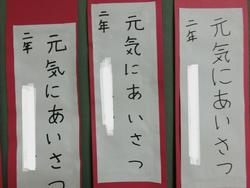 二年
元気にあいさつ
二年
元気にあいさつ
二年
元気にあいさつ